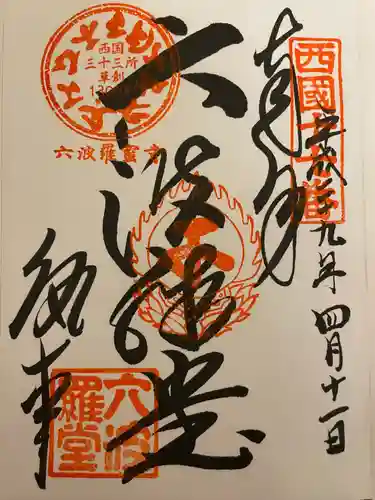 西國十七番
平成二九年四月十一日
奉拝
六波羅堂
西国
三十三所
草創
六波羅蜜寺
執事
六波
羅堂